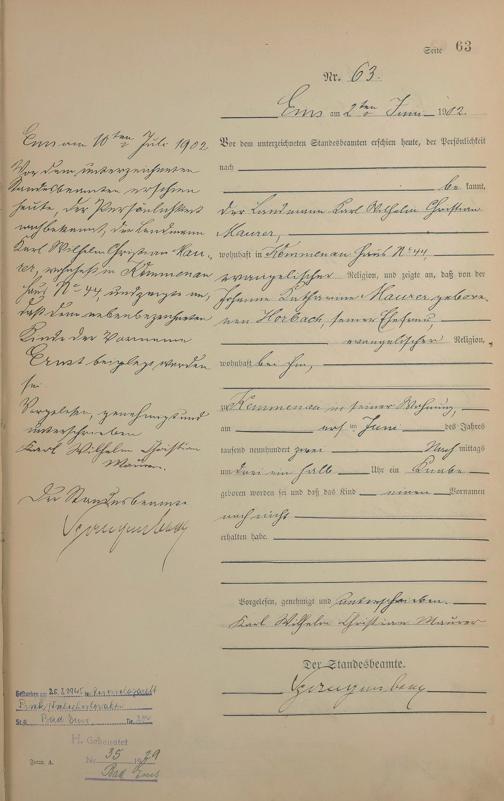 Seite 63
Nr. 63.
Ems am 2ten Juni 1902.
Vor dem unterzeichneten Standesbeamten erschien heute, der Persönlichkeit
nach
bekannt,
der Landmann Karl Wilhelm Christian
Maurer,
wohnhaft in Kemmenau Haus No 44,
evangelischer Religion, und zeigte an, daß von der
Katharine Maurer gebore-
nen Horbach, seiner Ehefrau,
evangelischer Religion,
wohnhaft bei ihm,
zu Kemmenau in seiner Wohnung,
am ersten Juni des Jahres
tausend neunhundert zwei Nachmittags
um drei ein halb Uhr ein Knabe
geboren worden sei und daß das Kind einen Vornamen
noch nicht
erhalten habe.
Vorgelesen, genehmigt und unterschrieben.
Karl Wilhelm Christian Maurer
Der Standesbeamte.
Ems am 10ten Juli 1902
Vor dem unterzeichneten
Standesbeamten erschien
heute, der Persönlichkeit
nach bekannt, der Landmann
Karl Wilhelm Christian Mau-
rer, wohnhaft in Kemmenau
Haus No 44, und zeigte an,
daß dem nebenbezeichneten
Kinde der Vorname
Ernst beigelegt worden
sei
Vorgelesen, genehmigt und
unterschrieben
Karl Wilhelm Christian
Maurer.
Der Standesbeamte
Gestorben am 25.2.1945 in
St.A. Bad Ems Nr.
H. Geheiratet
Nr. 35 1929
Bad Ems
Form. A.